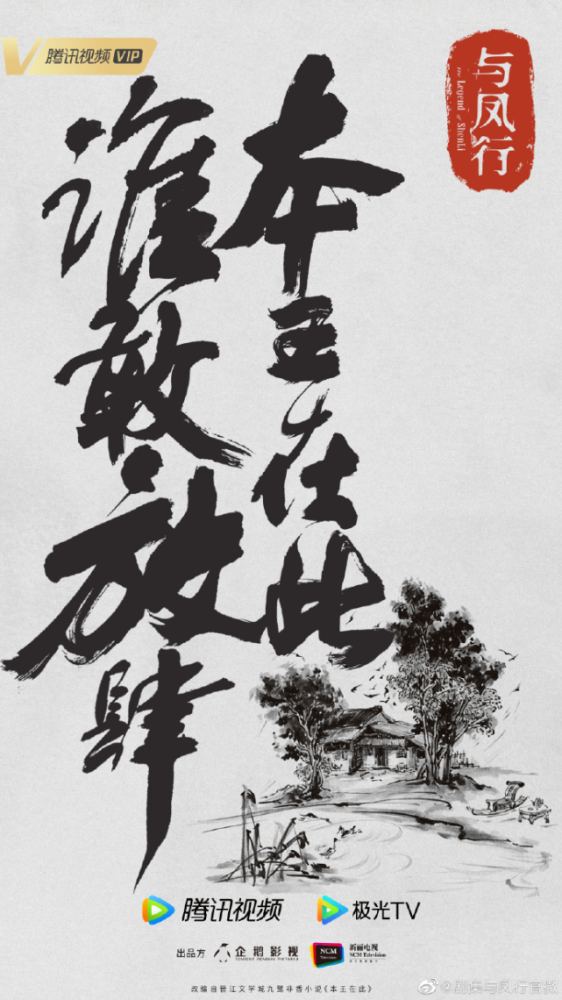 腾讯视频 VIP
与凤行
The Legend of ShenLi
本王在此
谁敢放肆
腾讯视频
极光TV
出品方
企鹅影视
TENCENT PENGUIN PICTURES
NCM
新丽电视
NCM Television
改编自晋江文学城九鹭非香小说《本王在此》